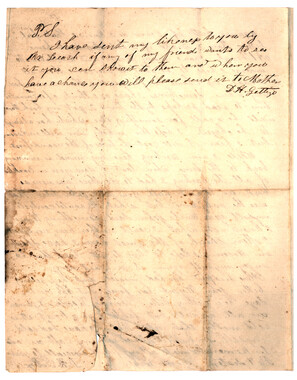 P.S.
I have sent my likeness to you by
Mr Leach if any of my friends wants to see
it you can show it to them and when you
have a chance you will please send it to Mother
D. H.